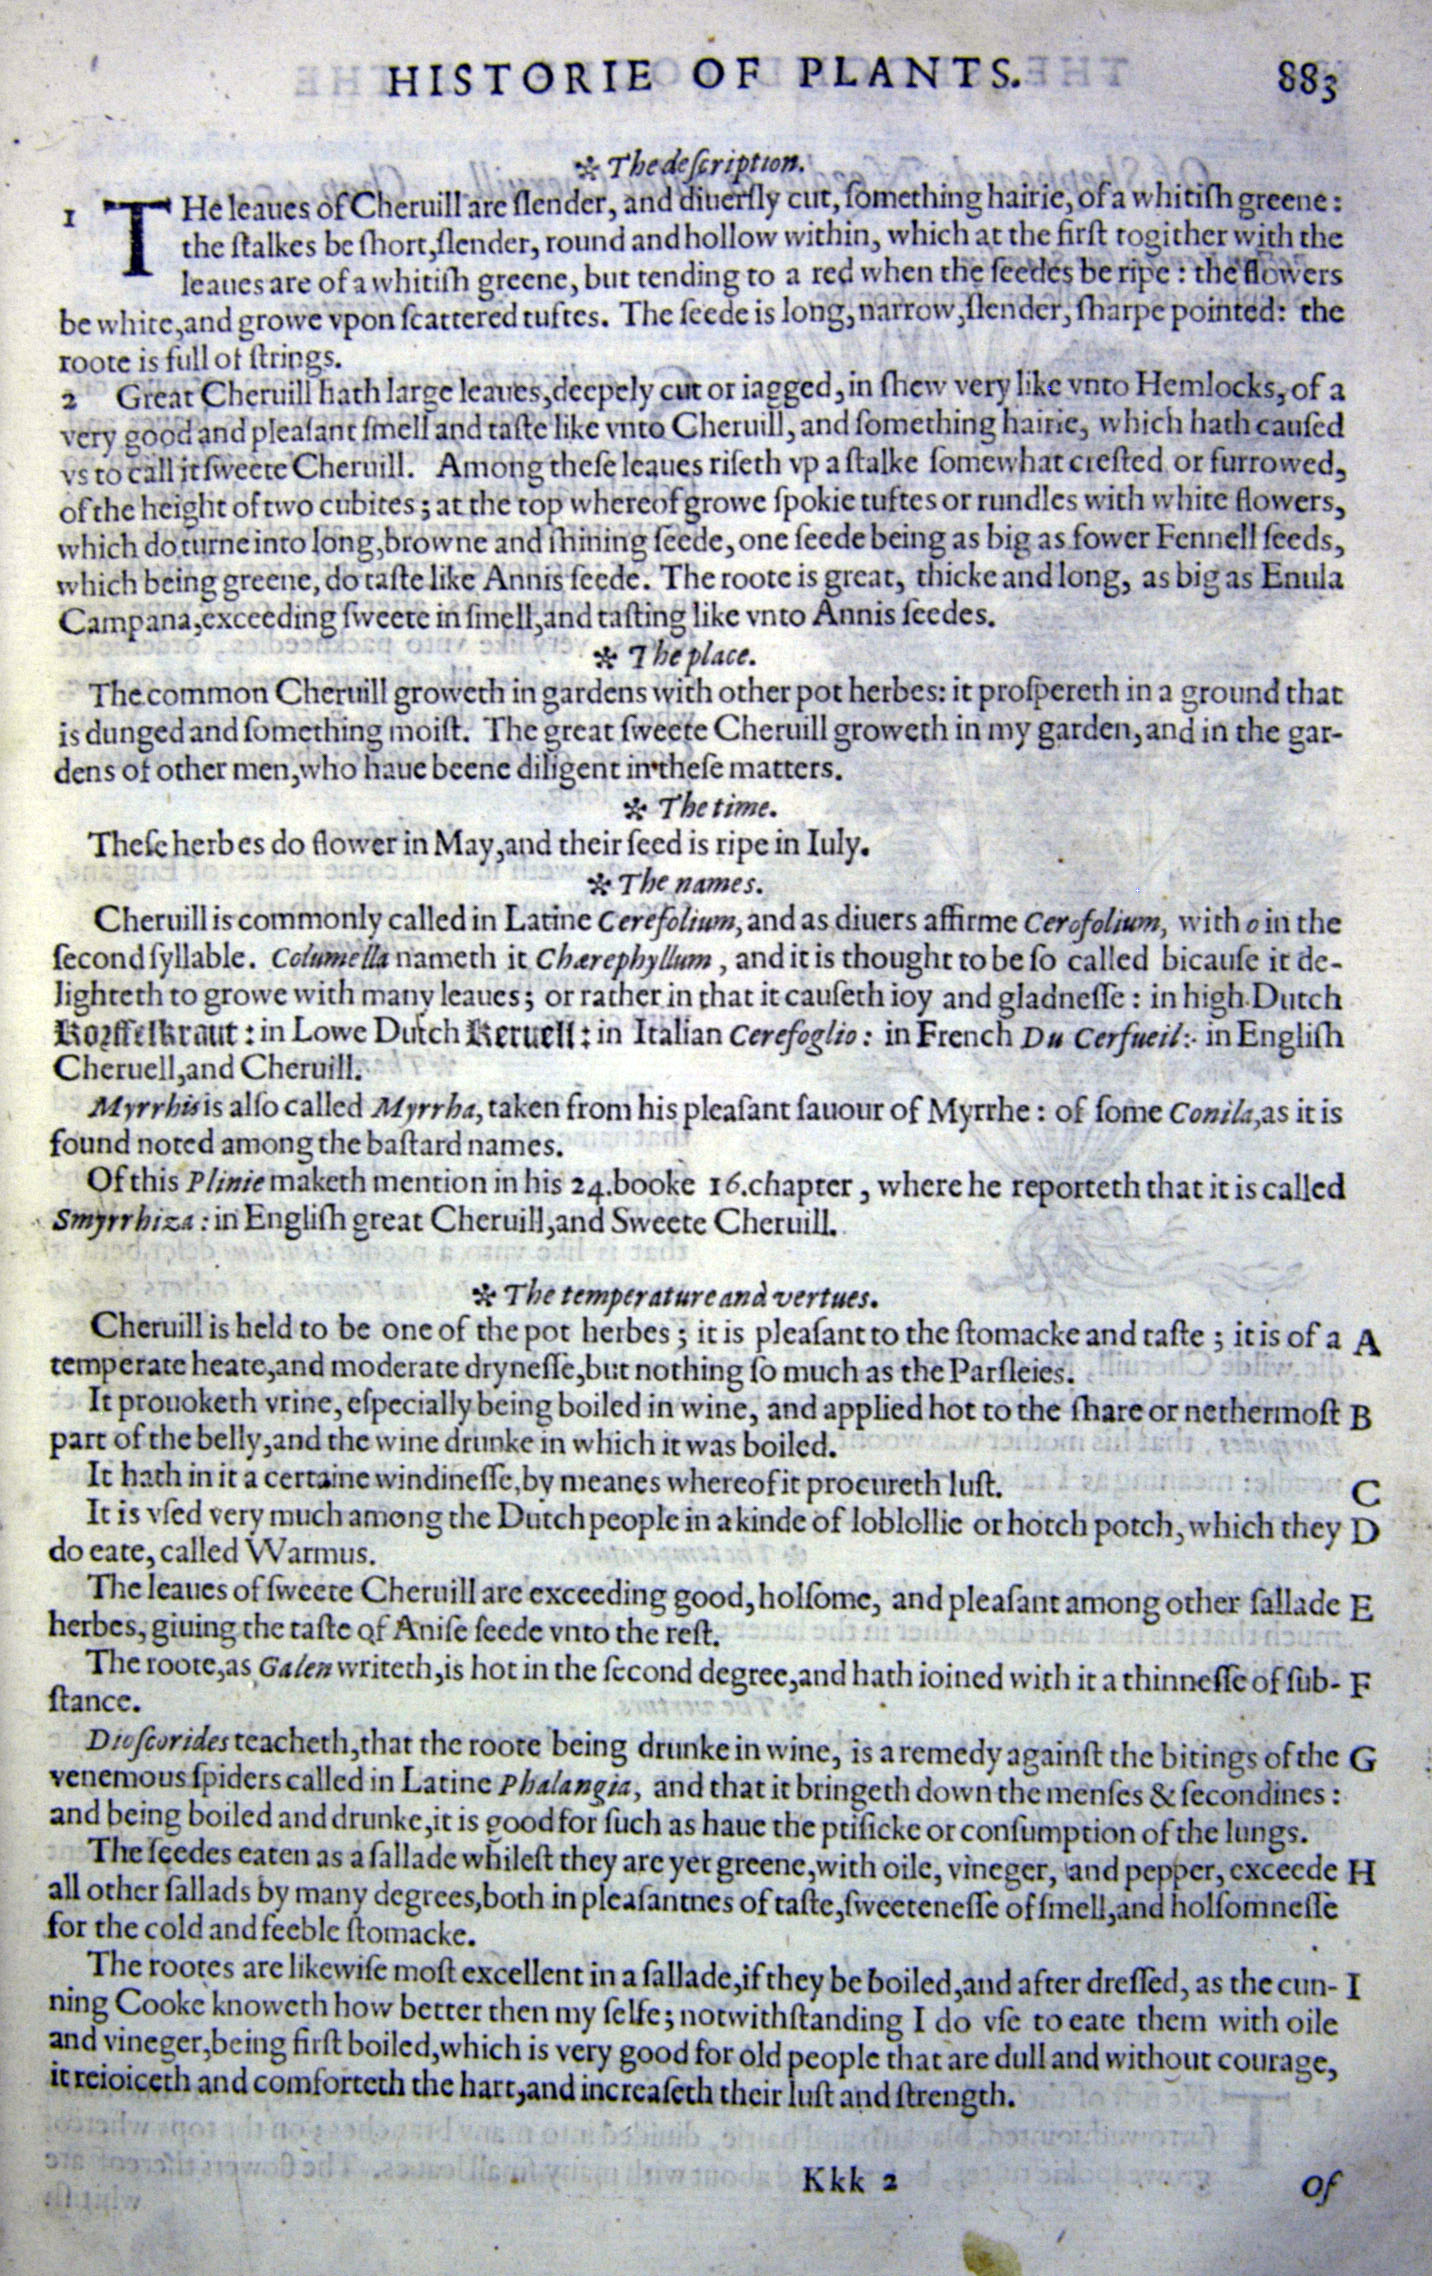 HISTORIE OF PLANTS. 883
✻ The deſcription.
1 THe leaues of Cheruill are ſlender, and diuerſly cut, ſomething hairie, of a whitiſh greene:
the ſtalkes be ſhort, ſlender, round and hollow within, which at the firſt togither with the
leaues are of a whitiſh greene, but tending to a red when the ſeedes be ripe: the flowers
be white, and growe vpon ſcattered tuftes. The ſeede is long, narrow, ſlender, ſharpe pointed: the
roote is full of ſtrings.
2 Great Cheruill hath large leaues, deepely cut or iagged, in ſhew very like vnto Hemlocks, of a
very good and pleaſant ſmell and taſte like vnto Cheruill, and ſomething hairie, which hath cauſed
vs to call it ſweete Cheruill. Among theſe leaues riſeth vp a ſtalke ſomewhat creſted or furrowed,
of the height of two cubites; at the top whereof growe ſpokie tuftes or rundles with white flowers,
which do turne into long, browne and ſhining ſeede, one ſeede being as big as fower Fennell ſeeds,
which being greene, do taſte like Annis ſeede. The roote is great, thicke and long, as big as Enula
Campana, exceeding ſweete in ſmell, and taſting like vnto Annis ſeedes.
✻ The place.
The common Cheruill groweth in gardens with other pot herbes: it proſpereth in a ground that
is dunged and ſomething moiſt. The great ſweete Cheruill groweth in my garden, and in the gar-
dens of other men, who haue beene diligent in theſe matters.
✻ The time.
Theſe herbes do flower in May, and their ſeed is ripe in Iuly.
✻ The names.
Cheruill is commonly called in Latine Cerefolium, and as diuers affirme Cerofolium, with o in the
ſecond ſyllable. Columella nameth it Chærephyllum, and it is thought to be ſo called bicauſe it de-
lighteth to growe with many leaues; or rather in that it cauſeth ioy and gladneſſe: in high Dutch
Korffelkraut: in Lowe Dutch Keruell: in Italian Cerefoglio: in French Du Cerfueil: in Engliſh
Cheruell, and Cheruill.
Myrrhis is alſo called Myrrha, taken from his pleaſant ſauour of Myrrhe: of ſome Conila, as it is
found noted among the baſtard names.
Of this Plinie maketh mention in his 24. booke 16. chapter, where he reporteth that it is called
Smyrrhiza: in Engliſh great Cheruill, and Sweete Cheruill.
✻ The temperature and vertues.
Cheruill is held to be one of the pot herbes; it is pleaſant to the ſtomacke and taſte; it is of a A
temperate heate, and moderate dryneſſe, but nothing ſo much as the Parſleies.
It prouoketh vrine, eſpecially being boiled in wine, and applied hot to the ſhare or nethermoſt B
part of the belly, and the wine drunke in which it was boiled.
It hath in it a certaine windineſſe, by meanes whereof it procureth luſt. C
It is vſed very much among the Dutch people in a kinde of loblollie or hotch potch, which they D
do eate, called Warmus.
The leaues of ſweete Cheruill are exceeding good, holſome, and pleaſant among other ſallade E
herbes, giuing the taſte of Aniſe ſeede vnto the reſt.
The roote, as Galen writeth, is hot in the ſecond degree, and hath ioined with it a thinneſſe of ſub- F
ſtance.
Dioſcorides teacheth, that the roote being drunke in wine, is a remedy againſt the bitings of the G
venemous ſpiders called in Latine Phalangia, and that it bringeth down the menſes & ſecondines:
and being boiled and drunke, it is good for ſuch as haue the ptiſicke or conſumption of the lungs.
The ſeedes eaten as a ſallade whileſt they are yet greene, with oile, vineger, and pepper, exceede H
all other ſallads by many degrees, both in pleaſantnes of taſte, ſweeteneſſe of ſmell, and holſomneſſe
for the cold and feeble ſtomacke.
The rootes are likewiſe moſt excellent in a ſallade, if they be boiled, and after dreſſed, as the cun- I
ning Cooke knoweth how better then my ſelfe; notwithſtanding I do vſe to eate them with oile
and vineger, being firſt boiled, which is very good for old people that are dull and without courage,
it reioiceth and comforteth the hart, and increaſeth their luſt and ſtrength.
Kkk 2 Of